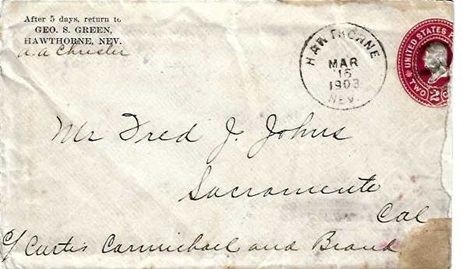 After 5 days, return to
GEO. S. GREEN,
HAWTHORNE, NEV.
HAWTHORNE
MAR
16
1903
NEV.
UNITED STATES
TWO
2
Mr Fred J. Johns
Sacramento
Cal
c/ Curtis Carmichael and Brand